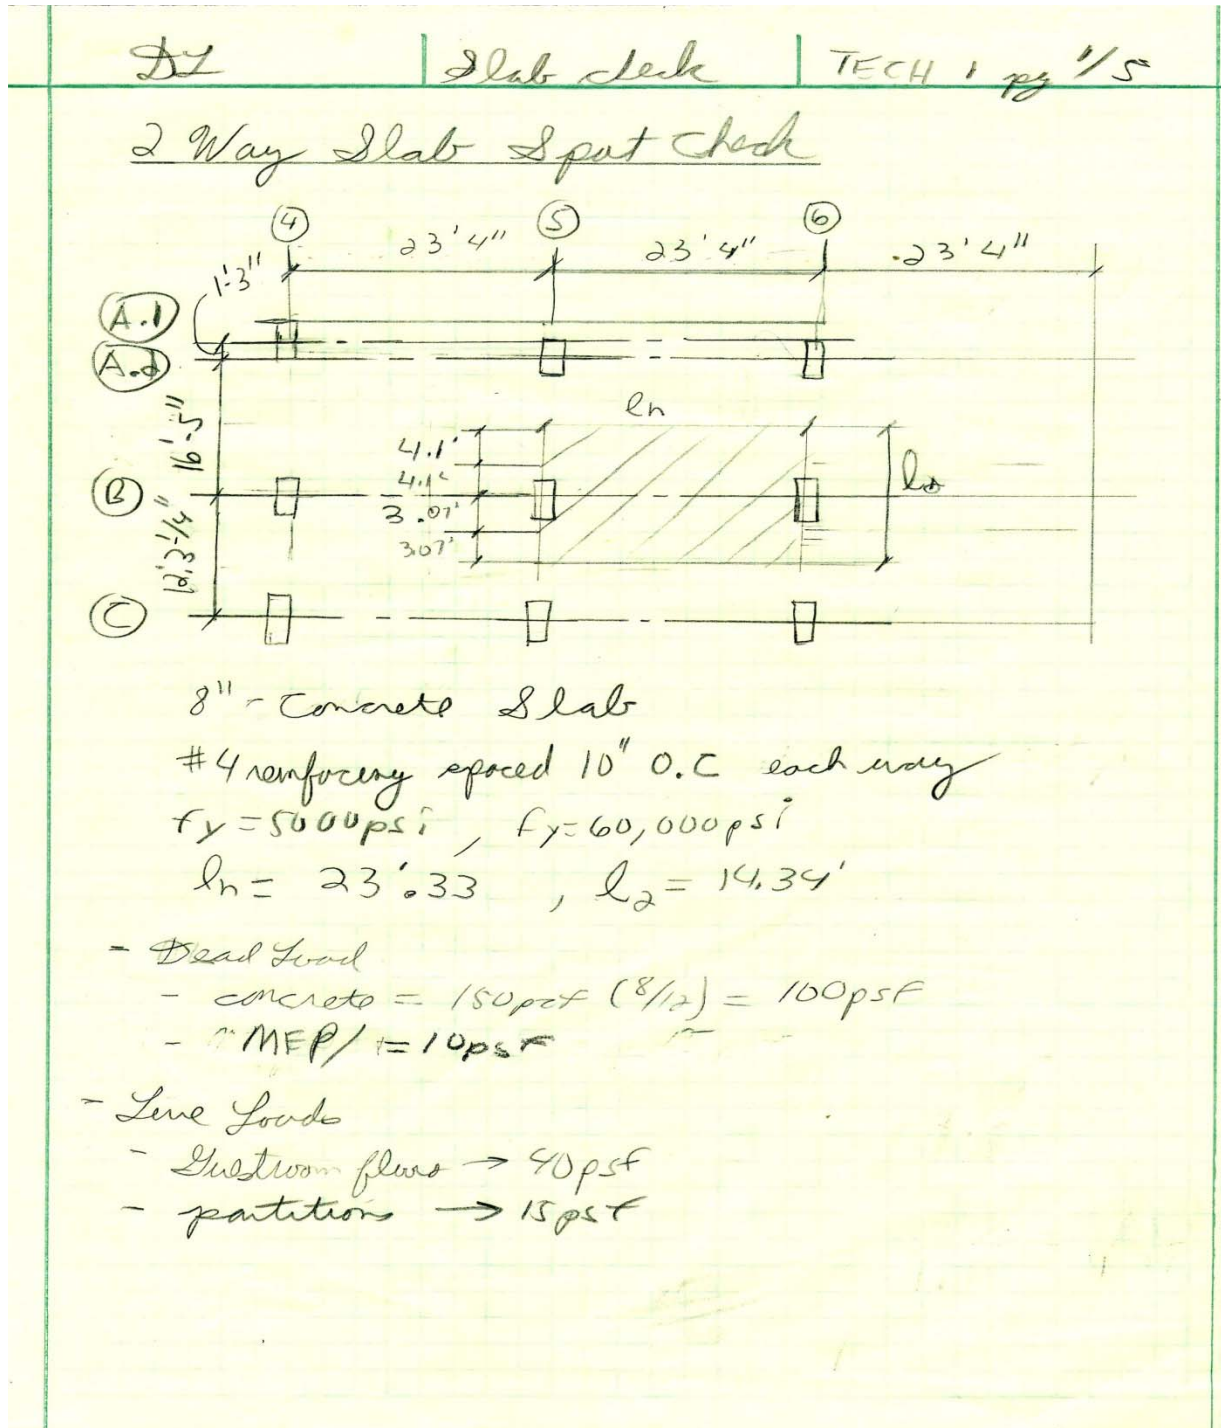 DL Slab check TECH 1 pg 1/5
2 Way Slab Spot Check
4 5 6
23'4" 23'4" 23'4"
1'-3"
A.1
A.2
ln
16'-5"
4.1'
4.1'
B
l2
3.07'
3.07'
12'-3 1/4"
C
8" - Concrete Slab
#4 reinforcing spaced 10" O.C each way
fy = 5000psi , fy = 60,000psi
ln = 23'.33 , l2 = 14.34'
- Dead Load
- concrete = 150pcf (8/12) = 100psf
- MEP/ = 10psf
- Live Loads
- Guestroom floors → 40psf
- partitions → 15psf